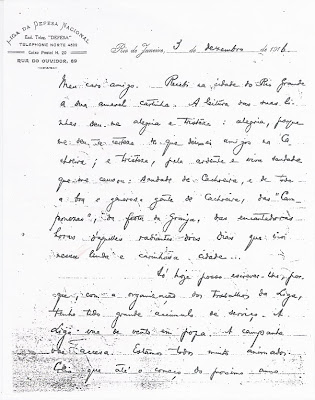 LIGA DA DEFESA NACIONAL
End. Teleg. "DEFESA"
TELEPHONE NORTE 4193
Caixa Postal N. 20
RUA DO OUVIDOR, 89
Rio de Janeiro, 3 de dezembro de 1916
Meu caro amigo. Recebi na cidade do Rio Grande
a sua amavel cartinha. A leitura das suas li-
nhas deu-me alegria e tristeza: alegria, porque
me deu a certeza de que deixei amigos na Ca-
choeira; e tristeza, pela ardente e viva saudade
que me causou: saudade de Cachoeira, e de toda
a boa e generosa gente de Cachoeira, das "Cam-
ponezas", da festa da Granja, das encantadoras
horas d'aquelles radiantes dous dias que vivi
nessa linda e carinhosa cidade...
Só hoje posso escrever-lhe, por-
que, com a organisação dos trabalhos da Liga,
tenho tido grande accumulo de serviço. A
Liga vae de vento em popa. A campanha
Estamos todos muito animados.
que até o começo do proximo anno